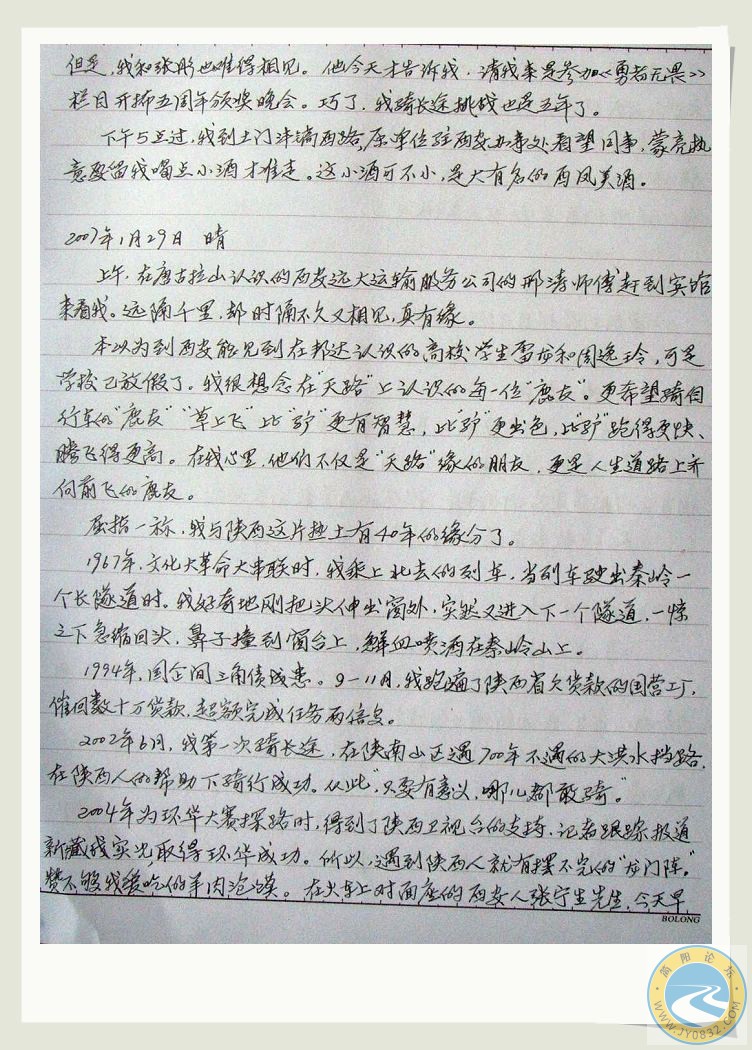 但是,我和张彤也难得相见。他今天才告诉我,请我来是参加《勇者无畏》
栏目开播五周年颁奖晚会。巧了,我骑长途挑战也是五年了。
下午5点过,我到土门沣镐西路,原单位驻西安办事处看望同事,蒙亮执
意要留我喝点小酒才准走。这小酒可不小,是大有名的西凤美酒。
2007年1月29日 晴
上午,在唐古拉山认识的西安远大运输服务公司的邢涛师傅赶到宾馆
来看我。远隔千里,却时隔不久又相见,真有缘。
本以为到西安能见到在邦达认识的高校学生雷龙和周逸玲,可是
学校已放假了。我很想念在"天路"上认识的每一位"鹿友"。更希望骑自
行车的"鹿友""草上飞"比"驴"更有智慧,比"驴"更出色,比"驴"跑得更快、
腾飞得更高。在我心里,他们不仅是"天路"缘的朋友,更是人生道路上齐
向前飞的鹿友。
屈指一称,我与陕西这片热土有40年的缘分了。
1967年,文化大革命大串联时,我乘上北去的列车,当列车驶出秦岭一
个长隧道时。我好奇地刚把头伸出窗外,突然又进入下一个隧道,一惊
之下急缩回头,鼻子撞到窗台上,鲜血喷洒在秦岭山上。
1994年,国企间三角债成患。9-11月,我跑遍了陕西省欠货款的国营工厂,
催回数十万货款,超额完成任务而信息。
2002年6月,我第一次骑长途,在陕南山区遇700年不遇的大洪水挡路,
在陕西人的帮助下骑行成功。从此"只要有意义,哪儿都敢骑。"
2004年为环华大赛探路时,得到了陕西卫视台的支持,记者跟踪报道
新藏线实况取得环华成功。所以,遇到陕西人就有摆不完的"龙门阵。"
赞不够我爱吃的羊肉泡馍。在火车上对面座的西安人张宁生先生,今天早
BOLONG
简阳论坛
WWW.JY0832.COM